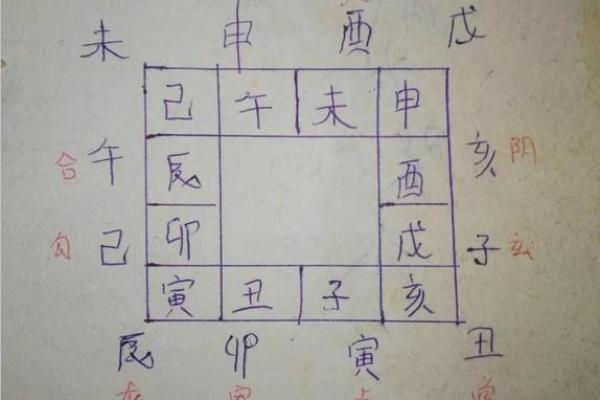 未 申 酉 戌
己 午 未 申
合 午 辰 酉 亥 阴
勾 己 卯 戌 子 玄
寅 丑 子 亥
辰 卯 寅 丑